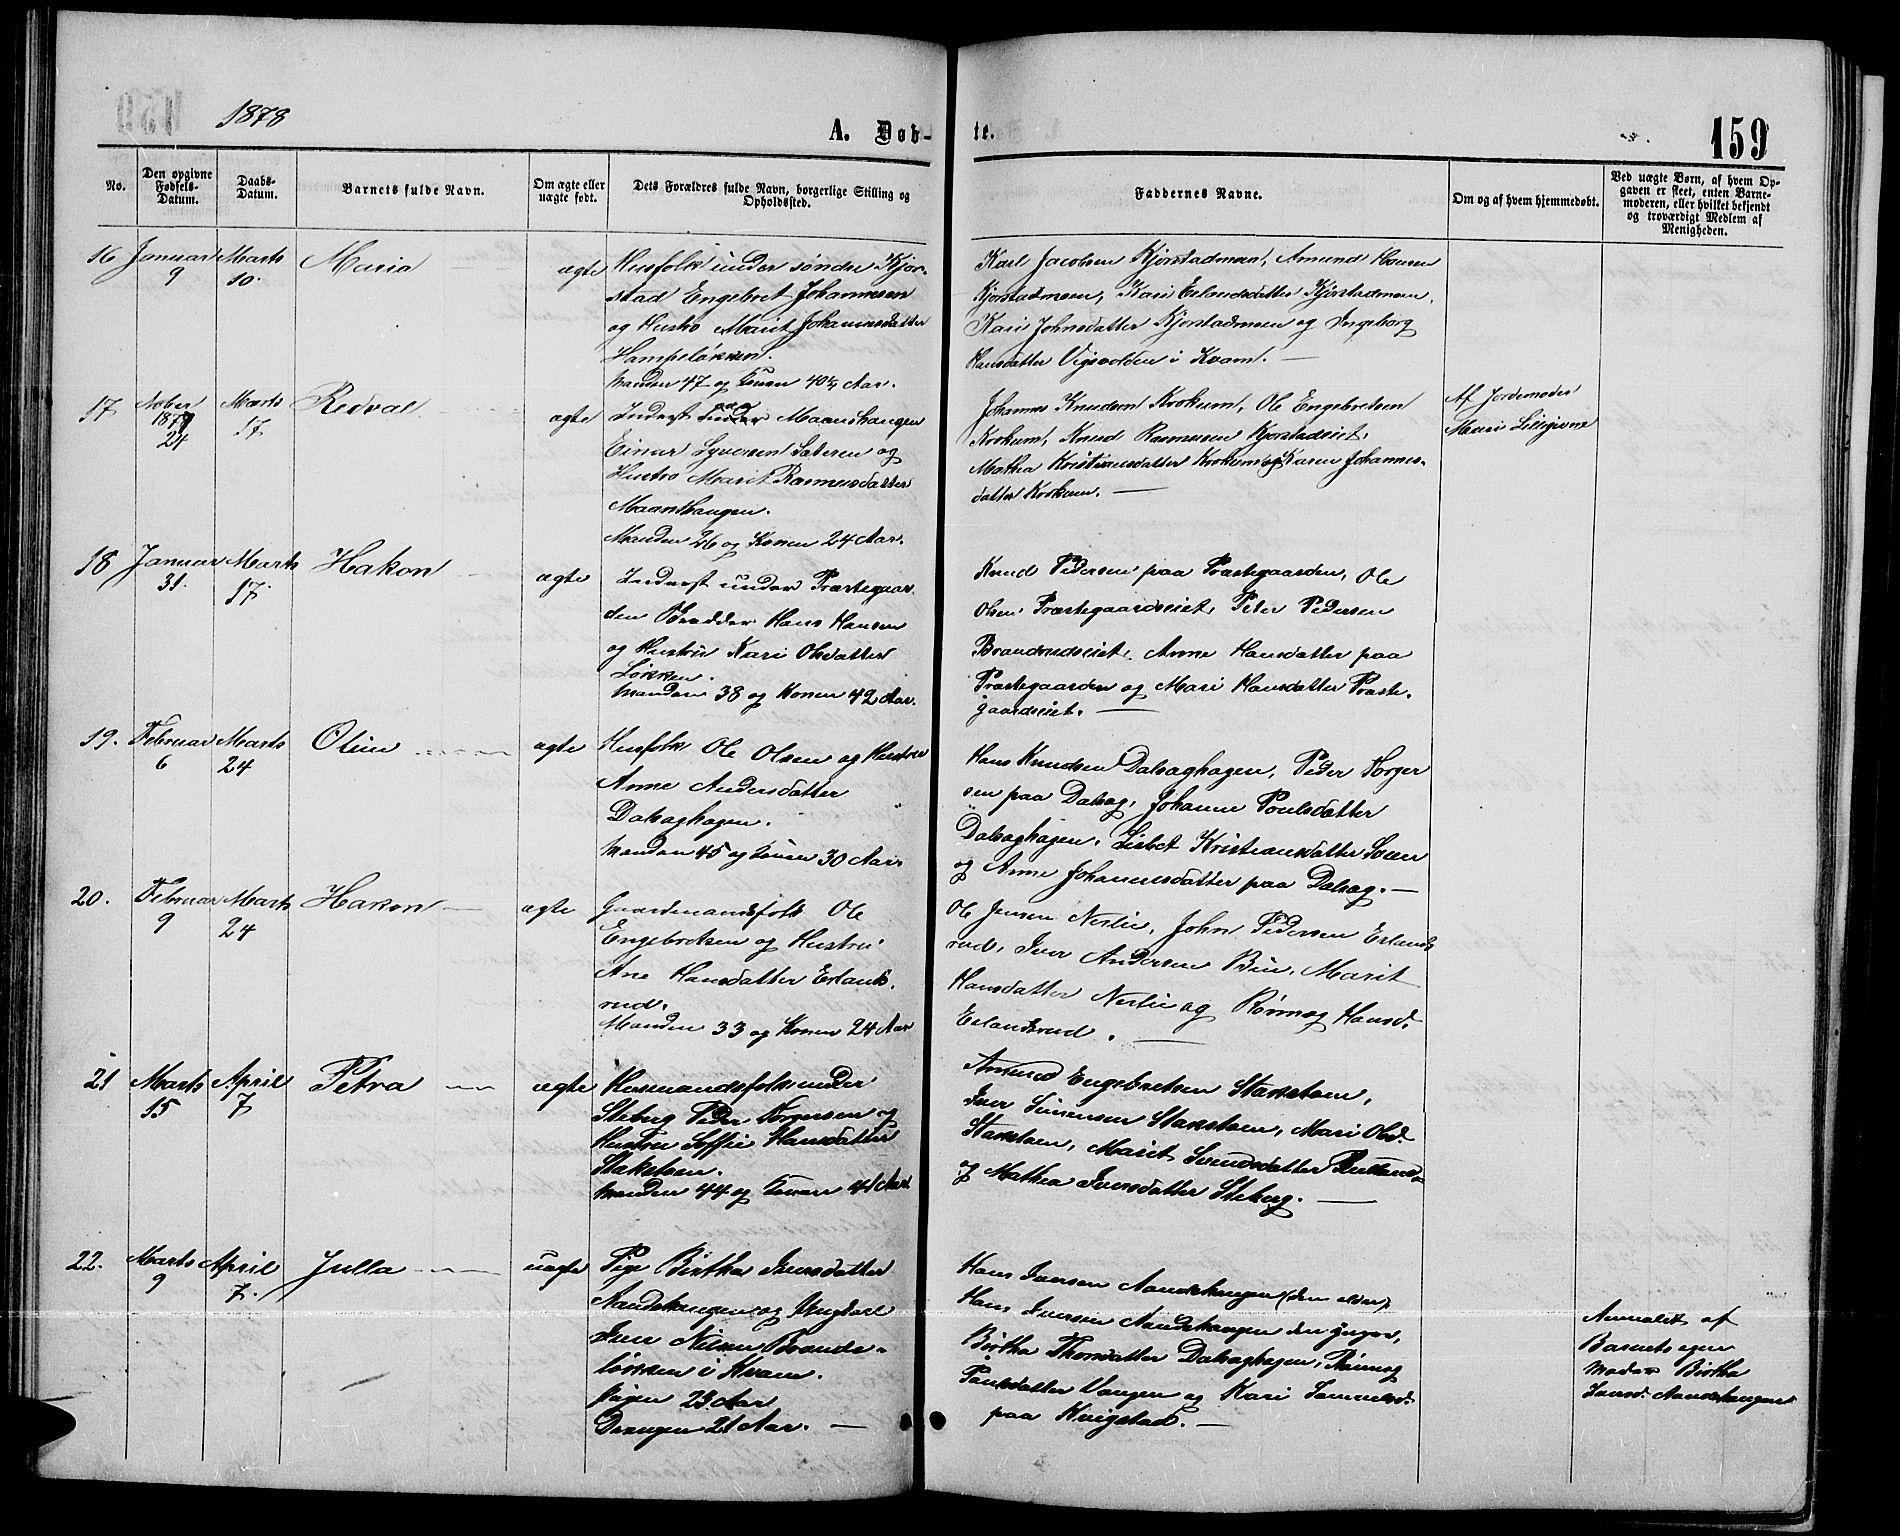 1878
A. Døb-
te.
159
No.
Den opgivne
Fødsels-
Datum.
Daabs-
Datum.
Barnets fulde Navn.
Om ægte eller
uægte født.
Dets Forældres fulde Navn, borgerlige Stilling og
Opholdssted.
Faddernes Navne.
Om og af hvem hjemmedøbt.
Ved uægte Børn, af hvem Op-
gaven er skeet, enten Barne-
moderen, eller hvilket bekjendt
og troværdigt Medlem af
Menigheden.
16 Januar 9 Marts 10. Maria ægte
Husfolk under søndre Kjør-
stad Engebret Johannesen
og Hustro Marit Johannesdatter
Hampeløkken.
Manden 47 og Konen 40½ Aar.
Karl Jacobsen Kjørstadmoen, Amund Hansen
Kjørstadmoen, Kari Erlandsdatter Kjørstadmoen,
Kari Johnsdatter Kjørstadmoen og Ingeborg
Hansdatter Vigevolden i Kvam.
17 Nober 1877 24 Marts 17. Redval ægte
Inderst Maanshaugen
Einar Syversen Sætersen og
Hustro Marit Rasmusdatter
Maanshaugen.
Manden 26 og Konen 24 Aar.
Johannes Knudsen Krokum, Ole Engebretsen
Krokum, Knud Rasmusen Kjørstadeiet,
Mathea Kristiansdatter Krokum og Karen Johannes-
datter Krokum.
Af Jordemoder
Mari Lillegivne
18 Januar 31. Marts 17. Hakon ægte
Inderst under Præstegaar
den Bredder Hans Hansen
og Hustru Kari Olsdatter
Løkken.
Manden 38 og Konen 42 Aar.
Knud Pedersen paa Præstegaarden, Ole
Olsen Præstegaardseiet, Peter Pedersen
Brandrudseiet, Anne Hansdatter paa
Præstegaarden og Mari Hansdatter Præste-
gaardseiet.
19. Februar 6 Marts 24 Oline ægte
Husfolk Ole Olsen og Hustro
Anne Andersdatter
Dalsaghagen.
Manden 45 og Konen 30 Aar.
Hans Knudsen Dalsaghagen, Peder Torger
sen paa Dalsag, Johanne Poulsdatter
Dalsaghagen, Lisbet Kristiansdatter Soen
og Anne Johannesdatter paa Dalsag.
20. Februar 9 Marts 24 Hakon ægte
Gaardmandsfolk Ole
Engebretsen og Hustru
Ane Hansdatter Erlands-
rud.
Manden 33 og Konen 24 Aar
Ole Jensen Nerlie, John Pedersen Erlands
rud, Iver Andersen Bue, Marit
Hansdatter Nerlie og Rønnog Hansd.
Erlandsrud.
21 Marts 15 April 7 Petra ægte
Husmandsfolk under
Steberg Peder Sørensen og
Hustru Soffie Hansdatter
Stakstoen.
Manden 44 og Konen 41 Aar.
Amund Engebretsen Stakstoen,
Iver Simensen Stakstoen, Mari Olsd.
Stakstoen, Marit Svendsdatter Rustand
og Mathea Iversdatter Steberg.
22. Marts 9 April 7. Julla uægte
Pige Birthe Iversdatter
Aandshaugen og Ungkarl
Iver Nilsen Brande-
løkken i Kvam.
Pigen 23 Aar
Drengen 21 Aar.
Hans Iversen Aandshaugen (den eldre),
Hans Iversen Aandshaugen den yngre,
Birthe Thorsdatter Dalsaghagen, Rønnog
Poulsdatter Vangen og Kari Samuelsd.
paa Kvigstad.
Anmeldt af
Barnets egen
Moder Birthe
Iversd. Aandshaugen